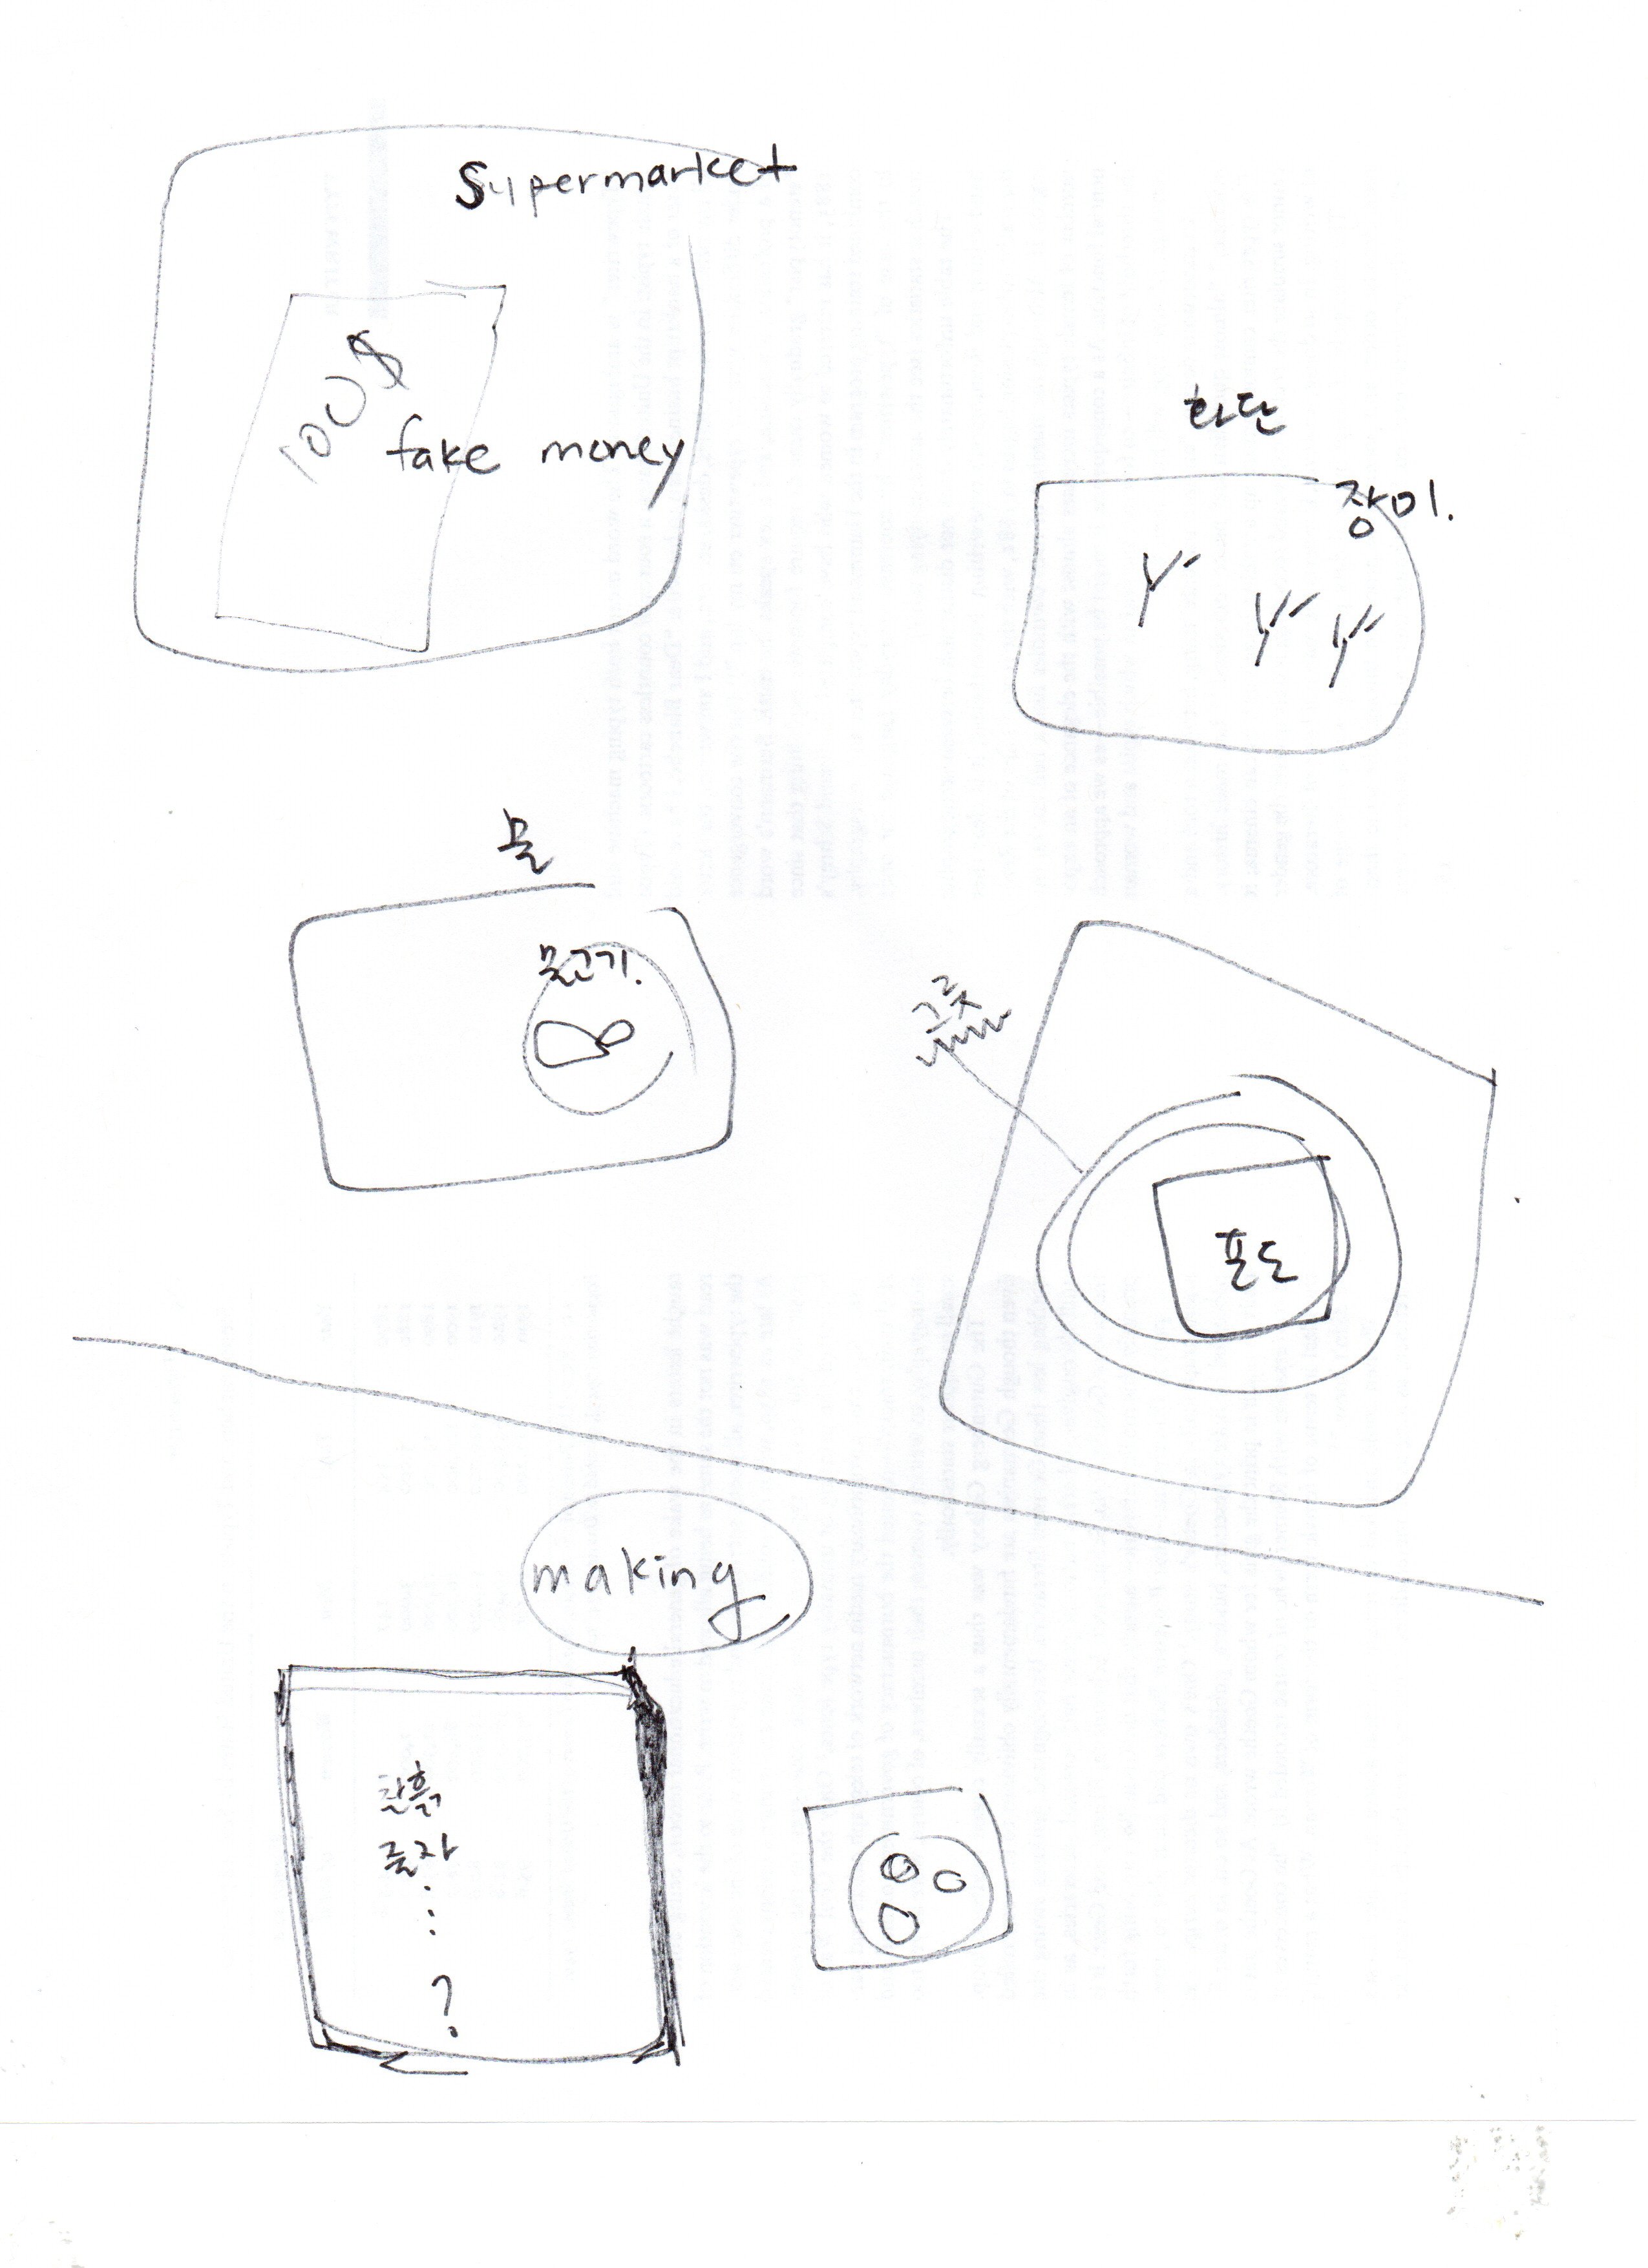 Supermarket
100$
fake money
화단
장미.
물
물고기.
그릇
포도
making
찰흙
글자
⋮
?